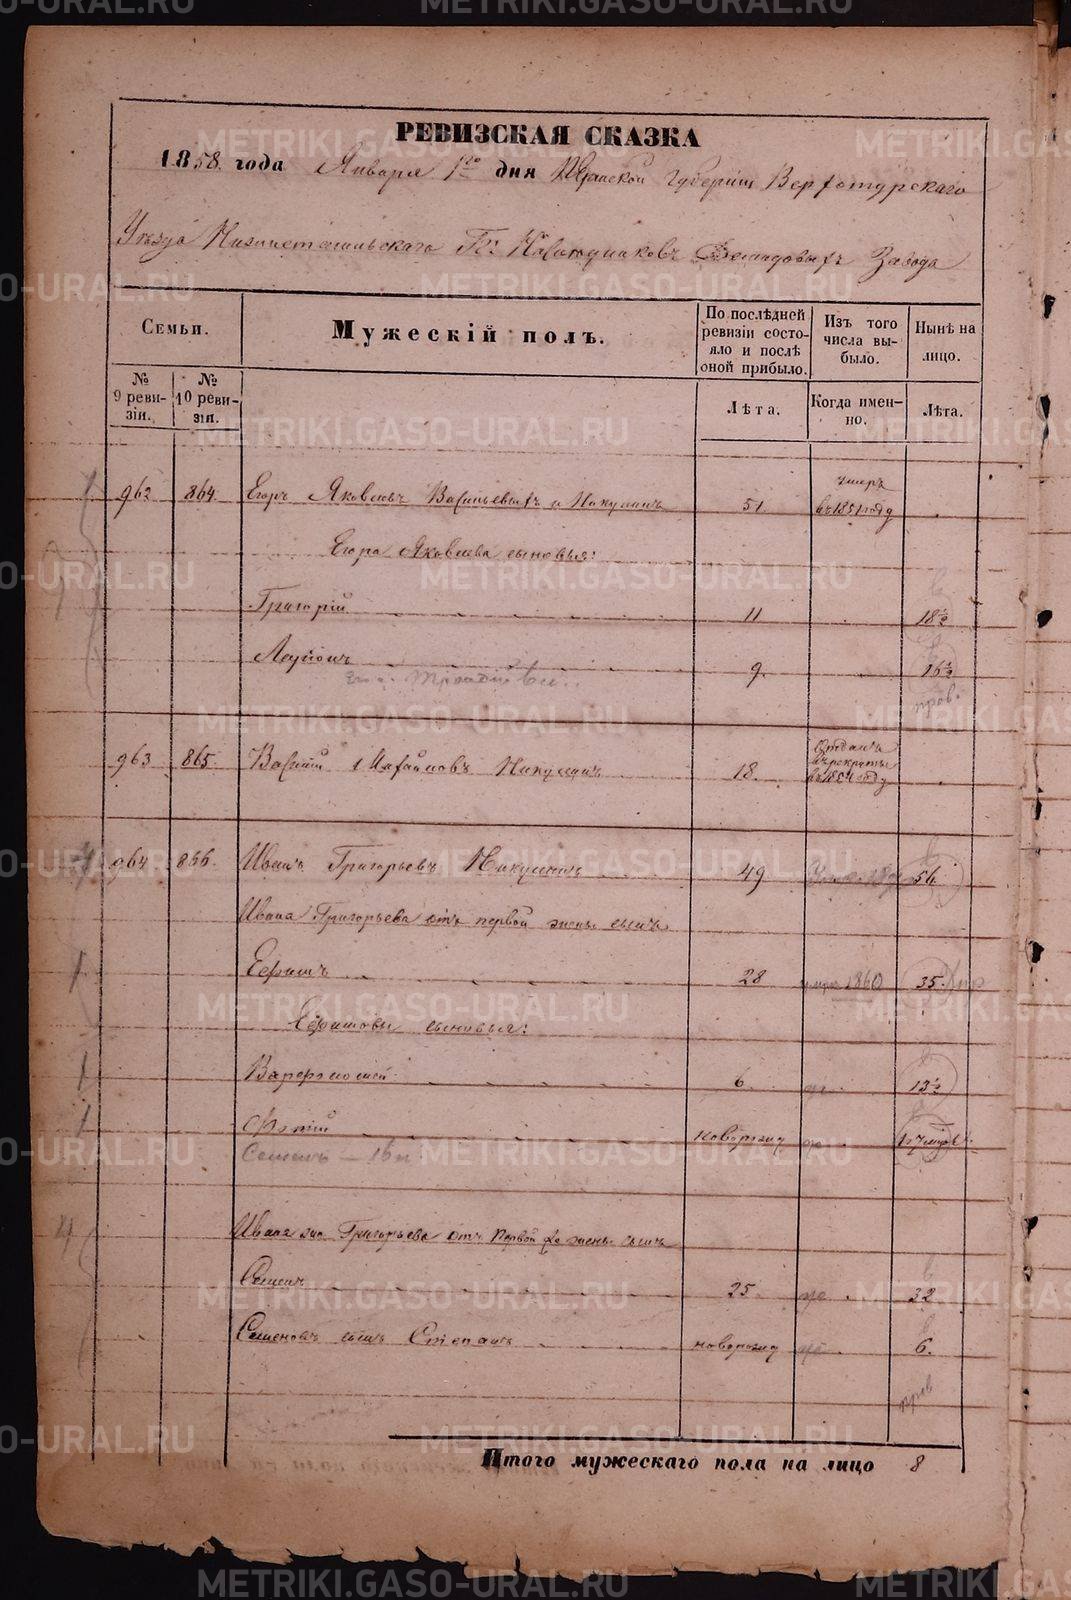 РЕВИЗСКАЯ СКАЗКА
1858 года Января 1го дня Пермской Губерніи Верхотурскаго
Уѣзда Нижнетагильскаго Гг. Наслѣдниковъ Демидовыхъ Завода
Семьи.
Мужескій полъ.
По послѣдней ревизіи состояло и послѣ оной прибыло.
Изъ того числа выбыло.
Нынѣ на лицо.
№ 9 ревизіи.
№ 10 ревизія.
Лѣта.
Когда именно.
Лѣта.
962 864. Егоръ Яковлевъ Васильевыхъ и Никулинъ 51 умеръ въ 1851 году
Егора Яковлева сыновья:
Григорій 11 18½
9. 16½
пров.
963 865. Василій Никулинъ 18. Отданъ въ рекруты въ 1854 году
964 866. Иванъ Григорьевъ Никулинъ 49 56
Ивана Григорьева отъ первой жены сынъ
Ефимъ 28 умеръ 1860 35.
Ефимовы сыновья:
Варфоломей 6 13½
Фотій новорожд
Семенъ
Григорьева отъ первой же жены сынъ
Семенъ 25 32
Семеновъ сынъ Степанъ новорожд 6.
пров
Итого мужескаго пола на лицо 8
METRIKI.GASO-URAL.RU